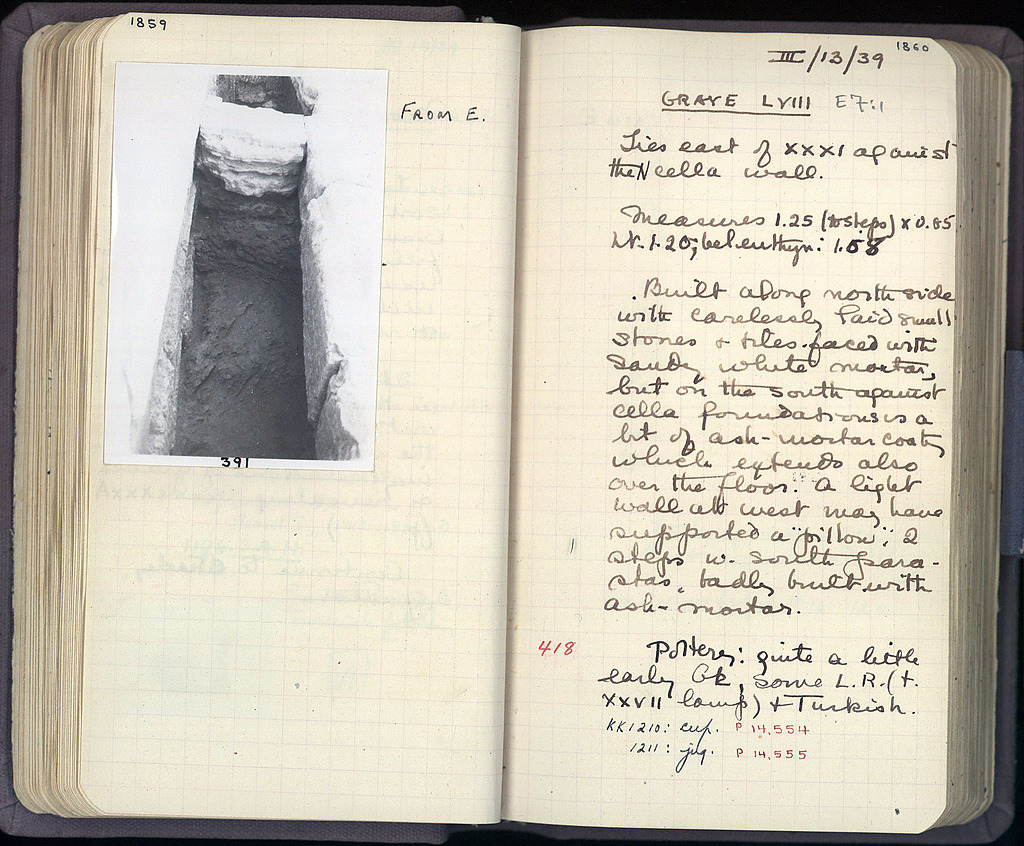 1859
FROM E.
391
1860
III/13/39
GRAVE LVIII E7:1
Lies east of XXXI against
the N cella wall.
Measures 1.25 (to steps) x 0.85
ht. 1.20; bel. euthyn: 1.58
Built along north side
with carelessly laid small
stones + tiles faced with
sandy white mortar,
but on the south against
cella foundations is a
bit of ash-mortar coat,
which extends also
over the floor. A light
wall at west may have
supported a "pillow"; 2
steps w. south para-
stas, badly built with
ash-mortar.
418
Pottery: quite a little
early Gk, some L.R. (+
XXVII lamp) + Turkish.
KK1210: cup. P 14,554
1211: jug. P 14,555